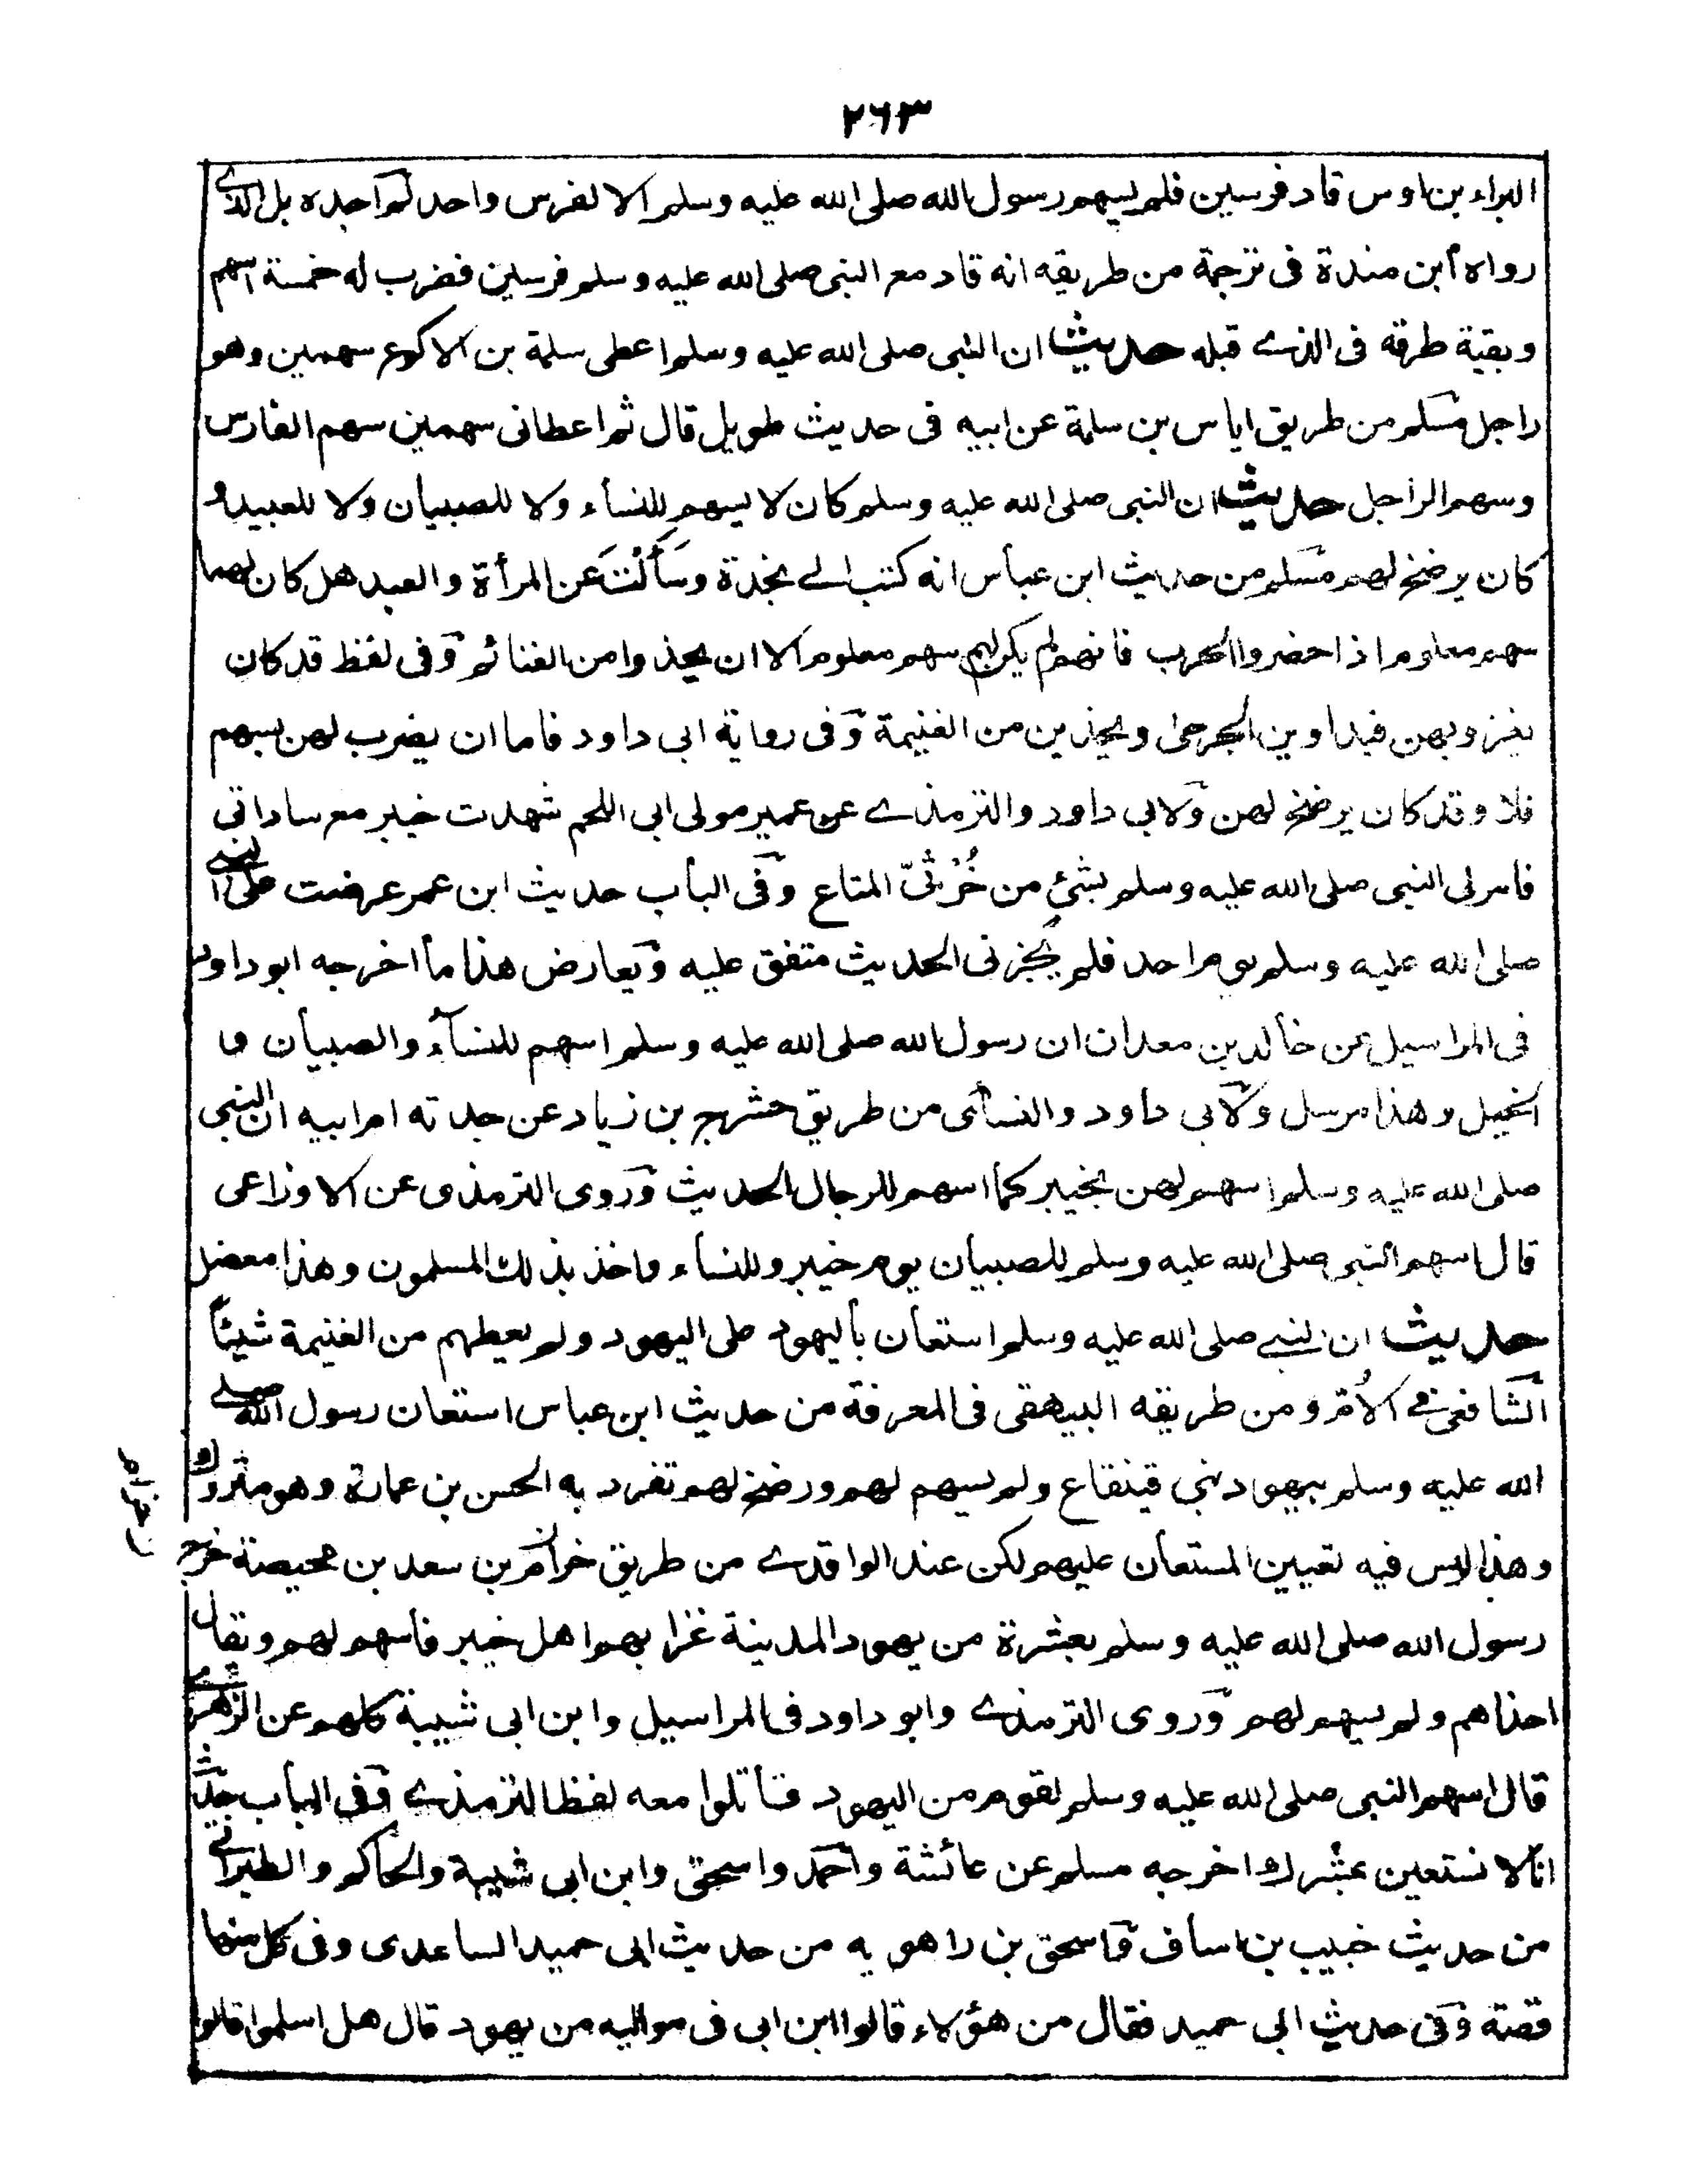 ٢٦٣
البراء بن اوس قاد فرسين فلم يسهم رسول الله صلى الله عليه وسلم الا لفرس واحد لم اجده بل الذي
رواه ابن مندة فى ترجمة من طريقه انه قاد مع النبى صلى الله عليه وسلم فرسين فضرب له خمسة اسهم
وبقية طرقه فى الذے قبله حديث ان النبى صلى الله عليه وسلم اعطى سلمة بن الاكوع سهمين وهو
راجل مسلم من طريق اياس بن سلمة عن ابيه فى حديث طويل قال ثم اعطانى سهمين سهم الفارس
وسهم الراجل حديث ان النبى صلى الله عليه وسلم كان لا يسهم للنساء ولا للصبيان ولا للعبيد و
كان يرضخ لهم مسلم من حديث ابن عباس انه كتب الے نجدة وَسَأَلْتَ عن المرأة والعبد هل كان لهما
سهم معلوم اذا حضروا الحرب فانهم لم يكن لهم سهم معلوم الا ان يحذوا من الغنائم وفى لفظ قد كان
يغزو بهن فيداوين الجرحى ويحذين من الغنيمة وفى رواية ابى داود فاما ان يضرب لهن بسهم
فلا وقد كان يرضخ لهن ولابى داود والترمذے عن عمير مولى ابى اللحم شهدت خيبر مع ساداتى
فامر لى النبى صلى الله عليه وسلم بشئ من خُرْثىّ المتاع وفى الباب حديث ابن عمر عرضت على النبے
صلى الله عليه وسلم يوم احد فلم يُجزنى الحديث متفق عليه ويعارض هذا ما اخرجه ابو داود
فى المراسيل عن خالد بن معدان ان رسول الله صلى الله عليه وسلم اسهم للنساء والصبيان و
الخيل وهذا مرسل ولابى داود والنسائى من طريق حشرج بن زياد عن جدته ام ابيه ان النبى
صلى الله عليه وسلم اسهم لهن بخيبر كما اسهم للرجال الحديث وروى الترمذى عن الاوزاعى
قال اسهم النبى صلى الله عليه وسلم للصبيان يوم خيبر وللنساء واخذ بذلك المسلمون وهذا معضل
حديث ان النبے صلى الله عليه وسلم استعان باليهود على اليهود ولم يعطهم من الغنيمة شيئاً
الشافعى فے الاُم ومن طريقه البيهقى فى المعرفة من حديث ابن عباس استعان رسول الله صلے
الله عليه وسلم بيهود بنى قينقاع ولم يسهم لهم ورضخ لهم تفرد به الحسن بن عمارة وهو متروك
وهذا ليس فيه تعيين المستعان عليهم لكن عند الواقدے من طريق خرام بن سعد بن محيصة خرج
رسول الله صلى الله عليه وسلم بعشرة من يهود المدينة غزا بهم اهل خيبر فاسهم لهم ويقال
احذاهم ولم يسهم لهم وروى الترمذے وابو داود فى المراسيل وابن ابى شيبة كلهم عن الزهرے
قال اسهم النبى صلى الله عليه وسلم لقوم من اليهود قاتلوا معه لفظ الترمذے وفى الباب حديث
انا لا نستعين بمشرك اخرجه مسلم عن عائشة واحمد واسحق وابن ابى شيبة والحاكم والطبرانے
من حديث خبيب بن اساف واسحق بن راهويه من حديث ابى حميد الساعدى وفى كل منهما
قصة وفى حديث ابى حميد فقال من هؤلاء قالوا ابن ابى فى مواليه من يهود قال هل اسلموا قالوا